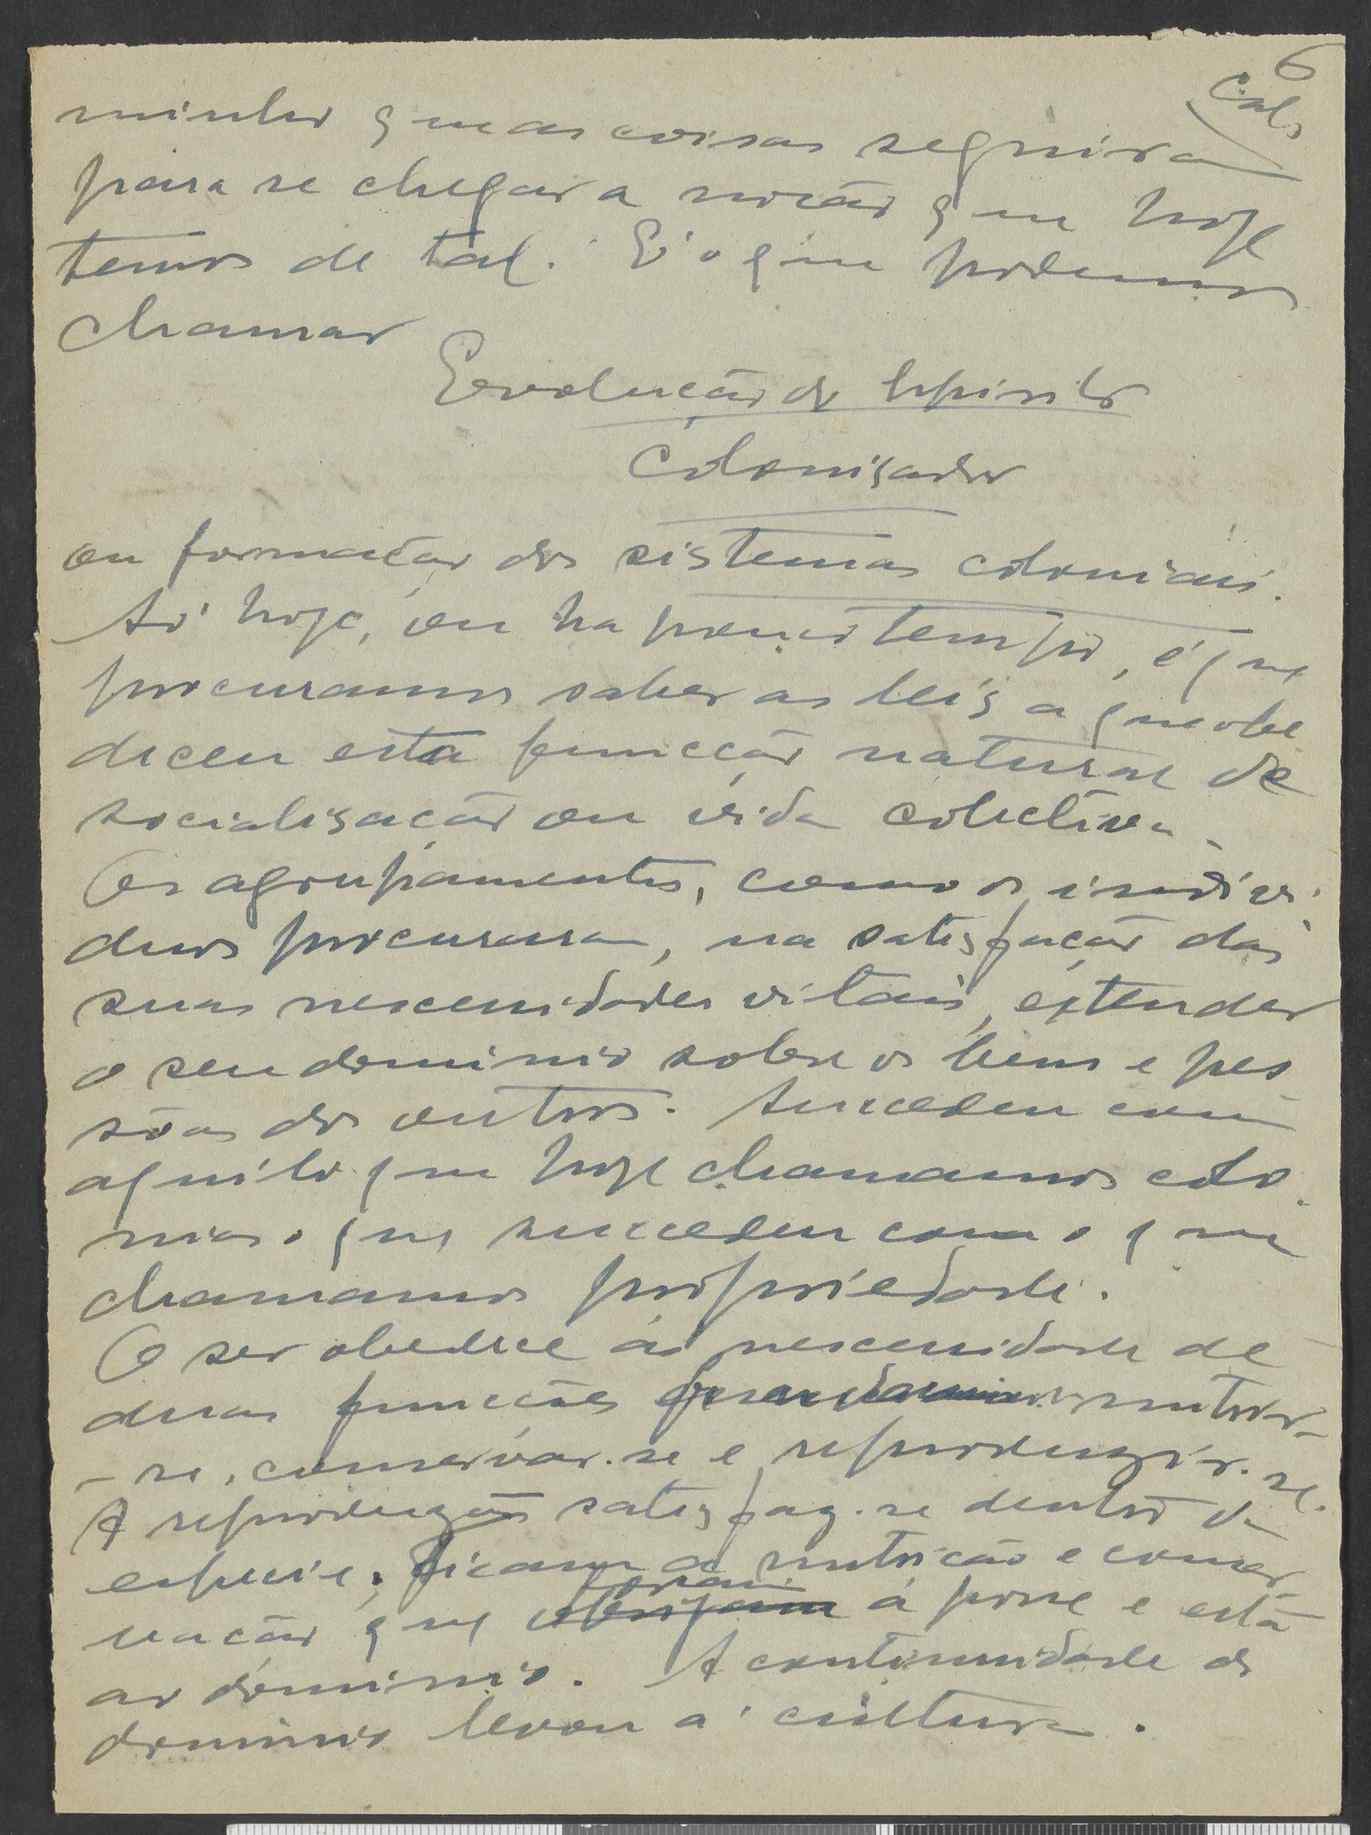 6
Cols
minho que as coisas seguiram
para se chegar a noção que hoje
temos de tal. E' o que podemos
chamar
Evolução do Espirito
Colonisador
ou formação dos sistemas coloniais.
Só hoje, ou ha pouco tempo, é que
procuramos saber as leis a que obe
decem esta funcção natural de
socialisação ou vida colectiva.
Os agrupamentos, como os indivi
duos procuram, na satisfação das
suas nescessidades vitais, extender
o seu dominio sobre os bens e pes
sôas dos outros. Sucedeu com
aquilo que hoje chamamos colo
nias o que succedeu com o que
chamamos propriedade.
O ser obedece ás nescessidade de
duas funcções nutrir-
-se, conservar-se e reproduzir-se.
A reprodução satisfaz-se dentro da
especie; ficam as nutrição e conser
vação que obrigam á posse e esta
ao dominio. A continuidade do
dominio levou á cultura.